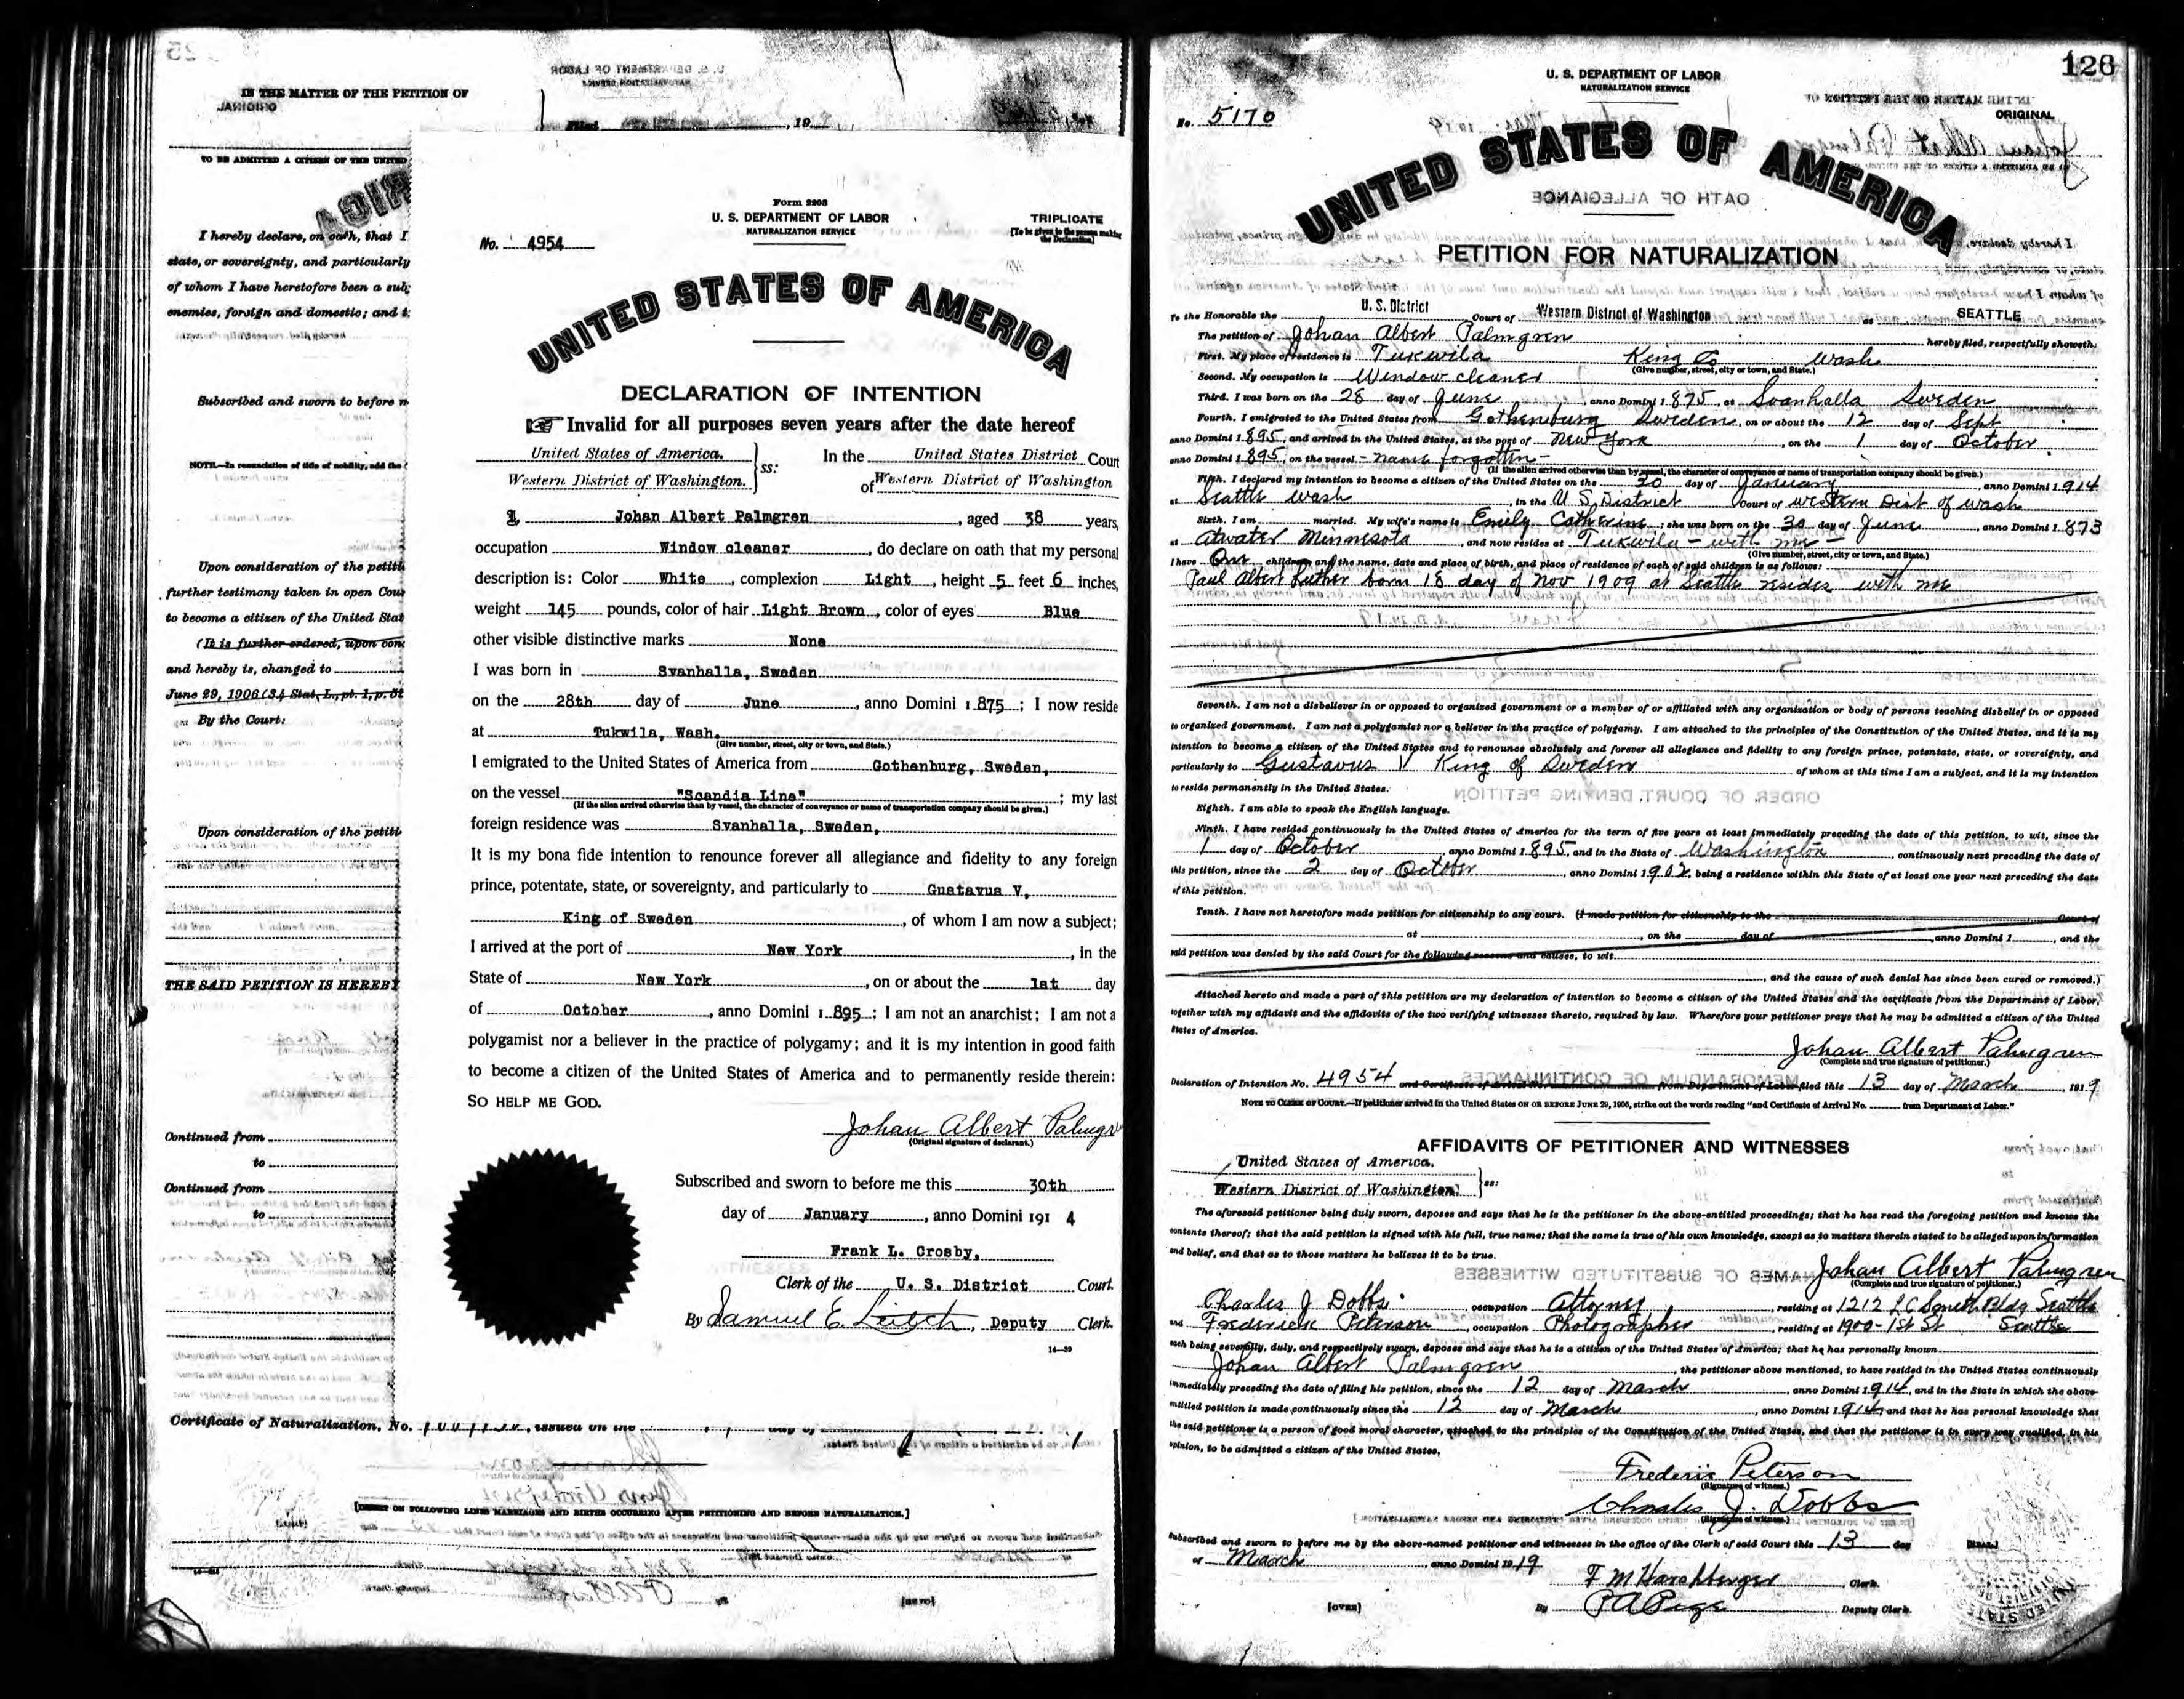 IN THE MATTER OF THE PETITION OF
ORIGINAL
U. S. DEPARTMENT OF LABOR
NATURALIZATION SERVICE
Filed , 19
TO BE ADMITTED A CITIZEN OF THE UNITED
I hereby declare, on oath, that I
state, or sovereignty, and particularly
of whom I have heretofore been a
enemies, foreign and domestic; and
Subscribed and sworn to before
NOTE.—In renunciation of title of nobility, add the
Upon consideration of the
further testimony taken in open
to become a citizen of the United
(It is further ordered, upon
and hereby is, changed to
June 29, 1906 (34 Stat. L., pt. 1, p.
By the Court:
Upon consideration of the
THE SAID PETITION IS
Continued from
to
Continued from
to
Certificate of Naturalization, No. , issued on the day of
[INSERT ON FOLLOWING LINES MARRIAGES AND BIRTHS OCCURRING AFTER PETITIONING AND BEFORE NATURALIZATION.]
Form 2203
U. S. DEPARTMENT OF LABOR
NATURALIZATION SERVICE
TRIPLICATE
[To be given to the person making
the Declaration]
No. 4954
UNITED STATES OF AMERICA
DECLARATION OF INTENTION
☞ Invalid for all purposes seven years after the date hereof
United States of America, ss: In the United States District Court
Western District of Washington. of Western District of Washington
I, Johan Albert Palmgren, aged 38 years,
occupation Window cleaner, do declare on oath that my personal
description is: Color White, complexion Light, height 5 feet 6 inches,
weight 145 pounds, color of hair Light Brown, color of eyes Blue
other visible distinctive marks None
I was born in Svanhalla, Sweden
on the 28th day of June, anno Domini 1875; I now reside
at Tukwila, Wash.
(Give number, street, city or town, and State.)
I emigrated to the United States of America from Gothenburg, Sweden,
on the vessel "Scandia Line"; my last
(If the alien arrived otherwise than by vessel, the character of conveyance or name of transportation company should be given.)
foreign residence was Svanhalla, Sweden,
It is my bona fide intention to renounce forever all allegiance and fidelity to any foreign
prince, potentate, state, or sovereignty, and particularly to Gustavus V,
King of Sweden, of whom I am now a subject;
I arrived at the port of New York, in the
State of New York, on or about the 1st day
of October, anno Domini 1895; I am not an anarchist; I am not a
polygamist nor a believer in the practice of polygamy; and it is my intention in good faith
to become a citizen of the United States of America and to permanently reside therein:
SO HELP ME GOD.
Johan Albert Palmgren
(Original signature of declarant.)
Subscribed and sworn to before me this 30th
day of January, anno Domini 1914
Frank L. Crosby,
Clerk of the U. S. District Court.
By Samuel E. Leitch, Deputy Clerk.
14—39
[OVER]
126
U. S. DEPARTMENT OF LABOR
NATURALIZATION SERVICE
ORIGINAL
No. 5170
UNITED STATES OF AMERICA
OATH OF ALLEGIANCE
PETITION FOR NATURALIZATION
To the Honorable the U. S. District Court of Western District of Washington at SEATTLE
The petition of Johan Albert Palmgren hereby filed, respectfully showeth:
First. My place of residence is Tukwila King Co Wash
(Give number, street, city or town, and State.)
Second. My occupation is Window cleaner
Third. I was born on the 28 day of June, anno Domini 1875, at Svanhalla Sweden
Fourth. I emigrated to the United States from Gothenburg Sweden, on or about the 12 day of Sept
anno Domini 1895, and arrived in the United States, at the port of New York, on the 1 day of October
anno Domini 1895, on the vessel - name forgotten -
(If the alien arrived otherwise than by vessel, the character of conveyance or name of transportation company should be given.)
Fifth. I declared my intention to become a citizen of the United States on the 30 day of January, anno Domini 1914
at Seattle Wash, in the U S District Court of Western Dist of Wash
Sixth. I am married. My wife's name is Emily Catherine; she was born on the 30 day of June, anno Domini 1873
at Atwater Minnesota, and now resides at Tukwila - with me -
(Give number, street, city or town, and State.)
I have One children, and the name, date and place of birth, and place of residence of each of said children is as follows:
Paul Albert Luther born 18 day of Nov 1909 at Seattle resides with me
Seventh. I am not a disbeliever in or opposed to organized government or a member of or affiliated with any organization or body of persons teaching disbelief in or opposed
to organized government. I am not a polygamist nor a believer in the practice of polygamy. I am attached to the principles of the Constitution of the United States, and it is my
intention to become a citizen of the United States and to renounce absolutely and forever all allegiance and fidelity to any foreign prince, potentate, state, or sovereignty, and
particularly to Gustavus V King of Sweden of whom at this time I am a subject, and it is my intention
to reside permanently in the United States.
ORDER OF COURT DENYING PETITION
Eighth. I am able to speak the English language.
Ninth. I have resided continuously in the United States of America for the term of five years at least immediately preceding the date of this petition, to wit, since the
1 day of October, anno Domini 1895, and in the State of Washington, continuously next preceding the date of
this petition, since the 2 day of October, anno Domini 1902, being a residence within this State of at least one year next preceding the date
of this petition.
Tenth. I have not heretofore made petition for citizenship to any court. (I made petition for citizenship to the Court of
at , on the day of , anno Domini 1 , and the
said petition was denied by the said Court for the following reasons and causes, to wit
, and the cause of such denial has since been cured or removed.)
Attached hereto and made a part of this petition are my declaration of intention to become a citizen of the United States and the certificate from the Department of Labor,
together with my affidavit and the affidavits of the two verifying witnesses thereto, required by law. Wherefore your petitioner prays that he may be admitted a citizen of the United
States of America.
Johan Albert Palmgren
(Complete and true signature of petitioner.)
MEMORANDUM OF CONTINUANCES
Declaration of Intention No. 4954 and Certificate of Arrival No. from Department of Labor filed this 13 day of March, 1919
NOTE TO CLERK OF COURT.—If petitioner arrived in the United States ON OR BEFORE JUNE 29, 1906, strike out the words reading "and Certificate of Arrival No. from Department of Labor."
AFFIDAVITS OF PETITIONER AND WITNESSES
United States of America,
Western District of Washington, ss:
The aforesaid petitioner being duly sworn, deposes and says that he is the petitioner in the above-entitled proceedings; that he has read the foregoing petition and knows the
contents thereof; that the said petition is signed with his full, true name; that the same is true of his own knowledge, except as to matters therein stated to be alleged upon information
and belief, and that as to those matters he believes it to be true.
NAMES OF SUBSTITUTED WITNESSES
Johan Albert Palmgren
(Complete and true signature of petitioner.)
Charles J Dobbs, occupation Attorney, residing at 1212 L C Smith Bldg Seattle
and Frederick Peterson, occupation Photographer, residing at 1900-1st St Seattle
each being severally, duly, and respectively sworn, deposes and says that he is a citizen of the United States of America; that he has personally known
Johan Albert Palmgren, the petitioner above mentioned, to have resided in the United States continuously
immediately preceding the date of filing his petition, since the 12 day of March, anno Domini 1914, and in the State in which the above-
entitled petition is made continuously since the 12 day of March, anno Domini 1914, and that he has personal knowledge that
the said petitioner is a person of good moral character, attached to the principles of the Constitution of the United States, and that the petitioner is in every way qualified, in his
opinion, to be admitted a citizen of the United States.
Frederic Peterson
(Signature of witness.)
Charles J. Dobbs
(Signature of witness.)
Subscribed and sworn to before me by the above-named petitioner and witnesses in the office of the Clerk of said Court this 13 day
of March, anno Domini 1919
[SEAL.]
F M Harshberger, Clerk.
[OVER]
By P A Page, Deputy Clerk.